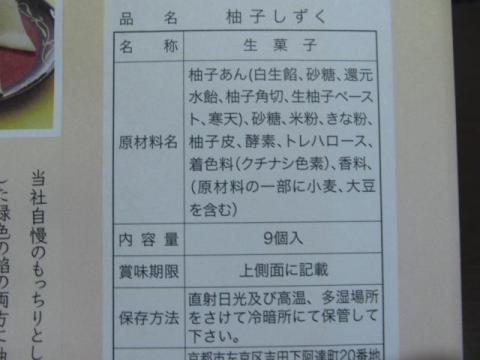 品名 柚子しずく
名称 生菓子
原材料名 柚子あん(白生餡、砂糖、還元
水飴、柚子角切、生柚子ペース
ト、寒天)、砂糖、米粉、きな粉、
柚子皮、酵素、トレハロース、
着色料(クチナシ色素)、香料、
(原材料の一部に小麦、大豆
を含む)
内容量 9個入
賞味期限 上側面に記載
保存方法 直射日光及び高温、多湿場所
をさけて冷暗所にて保管して
下さい。
京都市左京区吉田下阿達町20番地
当社自慢のもっちりとし
した緑色の餡の両方に